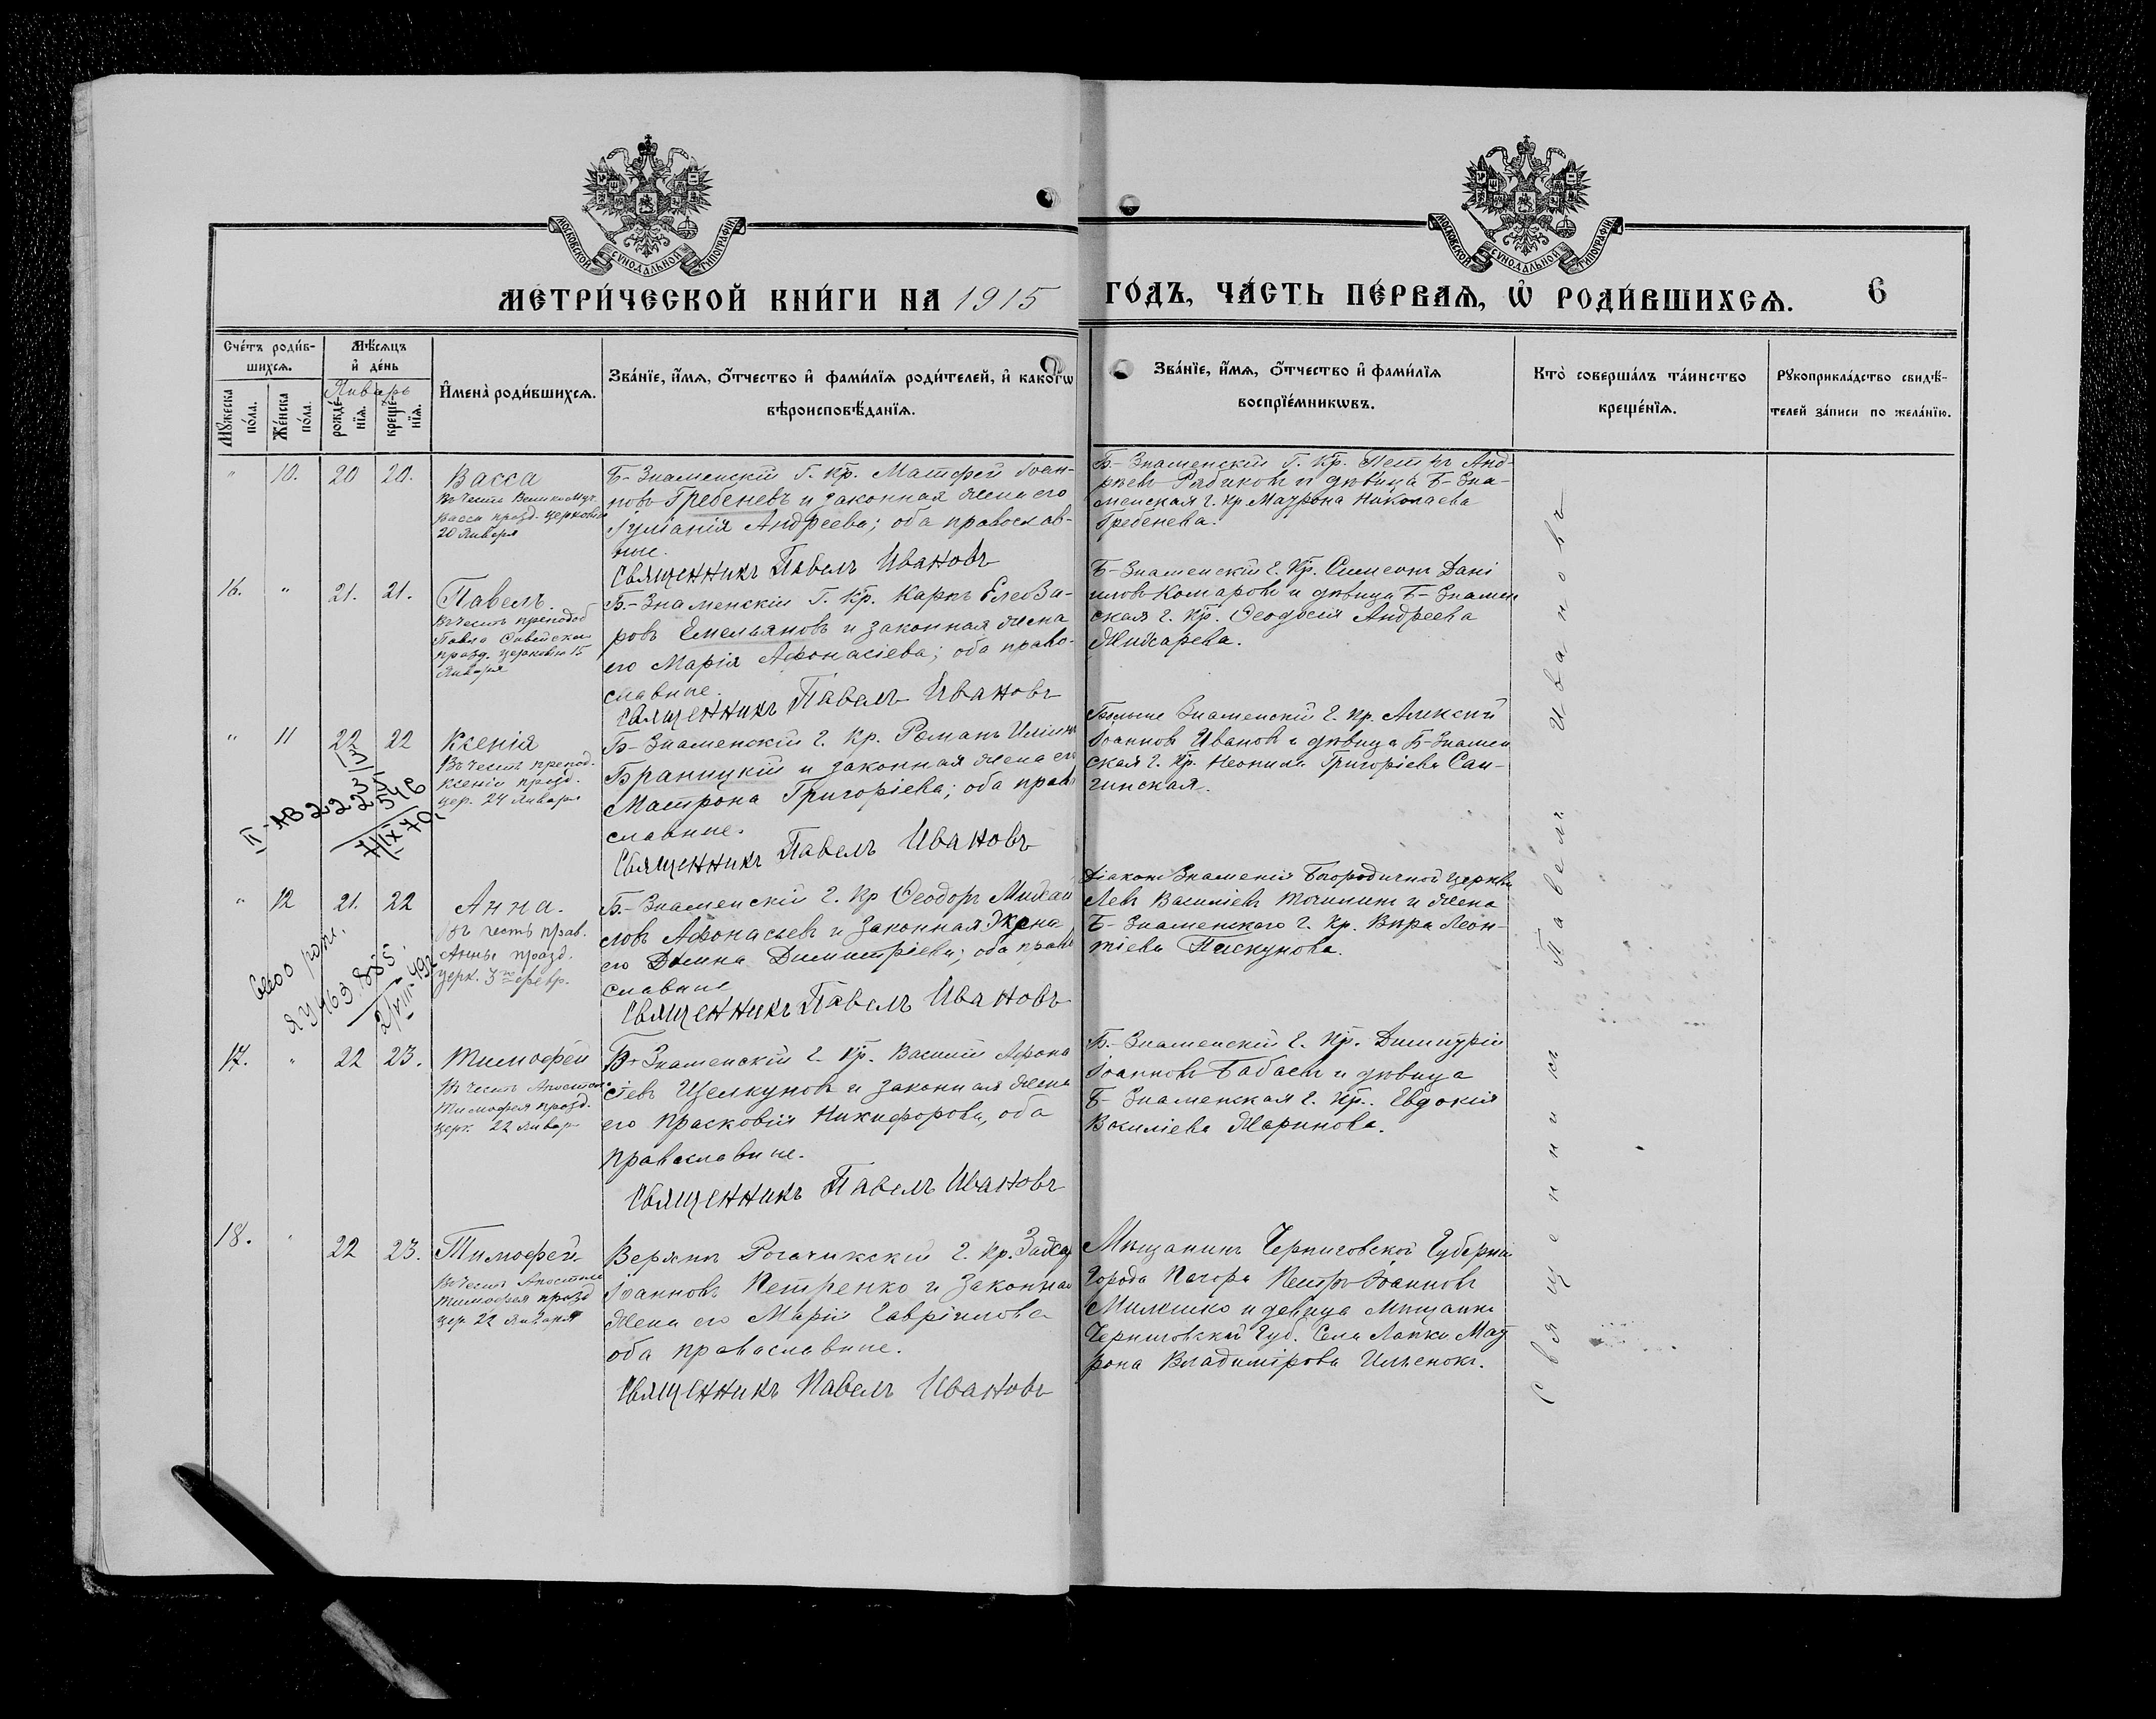 МОСКОВСКОЙ СѴНОДАЛЬНОЙ ТИПОГРАФІИ
МОСКОВСКОЙ СѴНОДАЛЬНОЙ ТИПОГРАФІИ
МЕТРИ́ЧЕСКОЙ КНИ́ГИ НА 1915
ГО́ДЪ, ЧА́СТЬ ПЕ́РВАѦ, Ѽ РОДИ́ВШИХСѦ. 6
Сче́тъ роди́в-
шихсѧ.
Мꙋжеска по́ла.
Же́нска по́ла.
Мѣ́сѧцъ
и҆ де́нь
Январь
рожде́-нїѧ.
креще́-нїѧ.
И҆мена̀ роди́вшихсѧ.
Зва́нїе, и҆́мѧ, ѻ҆́тчество и҆ фами́лїѧ роди́телей, и҆ како́гѡ
вѣроисповѣ́данїѧ.
Зва́нїе, и҆́мѧ, ѻ҆́тчество и҆ фами́лїѧ
воспрїе́мникѡвъ.
Кто̀ соверша́лъ та́инство
креще́нїѧ.
Рꙋкоприкла́дство свидѣ́-
телей за́писи по жела́нїю.
" 10. 20 20. Васса
Въ честь Велико Муч.
Вассы празд. церковію
20 Января
Б-Знаменскій Г. Кр. Матфей Іоан-
новъ Гребеневъ и законная жена его
Іуліанія Андреева; оба православ-
ные.
Священникъ Павелъ Ивановъ
Б-Знаменскій Г. Кр. Петръ Анд-
реевъ Рябиковъ и дѣвица Б-Зна-
менская г. Кр. Матрона Николаева
Гребенева.
16. " 21. 21. Павелъ.
Въ честь преподоб
Павла Фивейскаго
празд. церковью 15
Января
Б-Знаменскій Г. Кр. Карпъ Елеаза-
ровъ Емельяновъ и законная жена
его Марія Афонасіева; оба право-
славные.
Священникъ Павелъ Ивановъ
Б-Знаменскій г. Кр. Симеонъ Дані
иловъ Комаровъ и дѣвица Б-Знамен
ская г. Кр. Феодосія Андреева
Жихарева.
" 11 22 22 Ксенія
Въ честь препод.
Ксеніи празд.
цер. 24 Января
Б-Знаменскій г. Кр. Романъ
Браницкій и законная жена его
Матрона Григоріева; оба право
славные.
Священникъ Павелъ Ивановъ
Больше Знаменскій г. кр. Алексій
Іоанновъ Ивановъ и дѣвица Б-Знамен
ская г. Кр. Неонила Григоріева Сан-
гинская.
" 12 21. 22 Анна.
Въ честь прав.
Анны празд.
церк. 3го февр.
Б-Знаменскій г. Кр Феодоръ Михаи
ловъ Афонасьевъ и законная жена
его Домна Димитріева; оба право
славные
Священникъ Павелъ Ивановъ
Діаконъ Знаменія Богородичной церкви
Левъ Василіевъ и жена
Б-Знаменскаго г. Кр. Вѣра Леон-
тіева Пискунова.
17. " 22 23. Тимофей
Въ честь Апостола
Тимофея празд.
церк. 22 Январ
Б-Знаменскій г. Кр. Василій Афона
сіевъ Щелкуновъ и законная жена
его Прасковія Никифорова, оба
православные.
Священникъ Павелъ Ивановъ
Б-Знаменскій г. Кр. Димитрій
Іоанновъ Бабаевъ и дѣвица
Б-Знаменская г. Кр. Евдокія
Василіева Маринова.
18. " 22 23. Тимофей
Въ честь Апостола
Тимофея празд
цер. 22 Января
Верхне Рогачикскій г. Кр. Захар
Іоанновъ Петренко и законная
жена его Марія Гавріилова
оба православные.
Священникъ Павелъ Ивановъ
Мѣщанинъ Черниговской Губерніи
Города Погара Петръ Іоанновъ
и девица мѣщанка
Черниговской Губ. Села Лапки Мат
рона Владимірова
Священникъ Павелъ Ивановъ